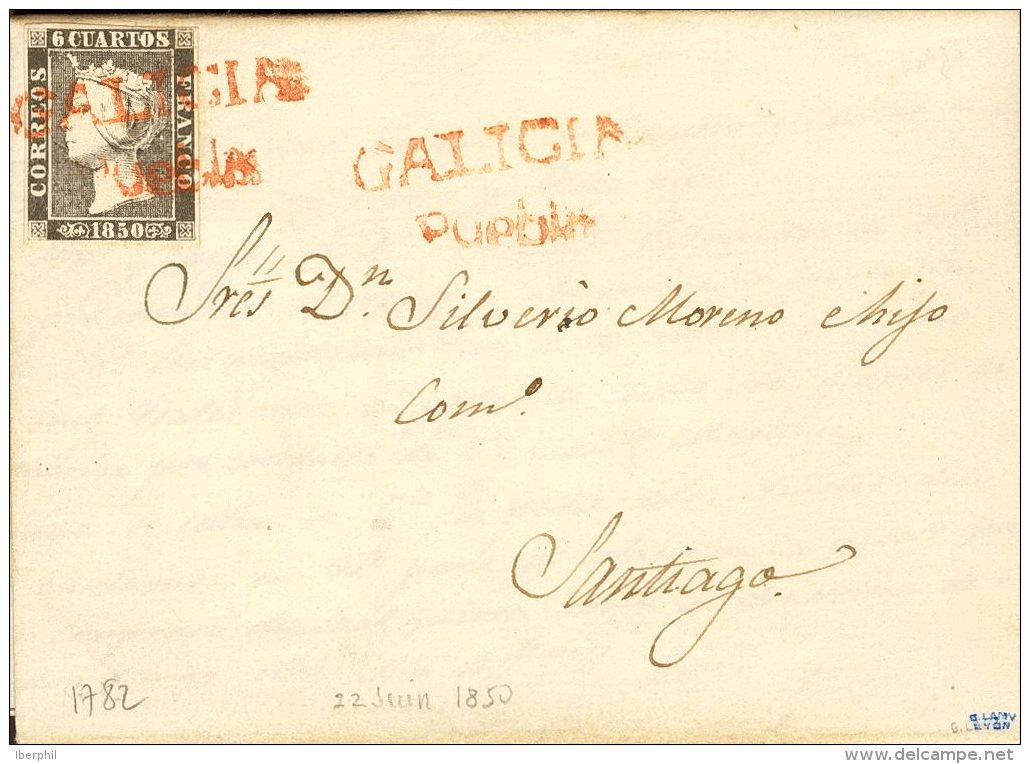 6 CUARTOS
CORREOS
FRANCO
1850
GALICIA
GALICIA
Puebla
Sres Dn. Silverio Moreno e hijo
Como.
Santiago.
1782
22 Juin 1850
G. LAMY
LYON
Iberphil
www.delcampe.net